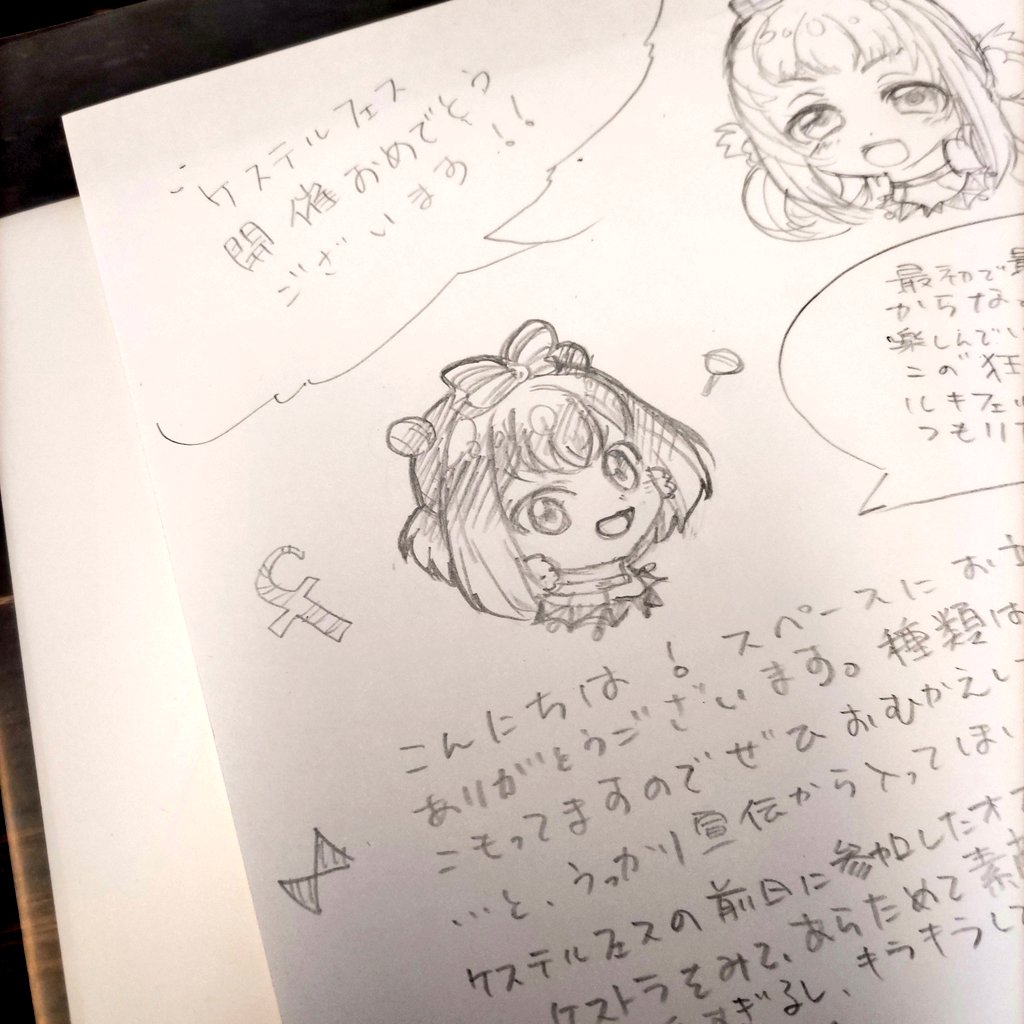 ケステルフェス
開催おめでとう
ございます!!
最初で最
からな
楽しんでい
この狂
ルキフェ
つもりで
こんにちは! スペースにお立
ありがとうございます。種類は
こもってますのでぜひおむかえし
…と、うっかり宣伝から入ってしまい
ケステルフェスの前日に参加したオ
ケストラをみて、あらためて素
すぎるし、キラキラして